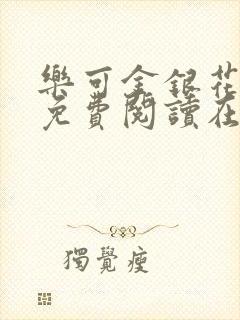 樂可金銀花
免費閱讀在
獨覺瘦